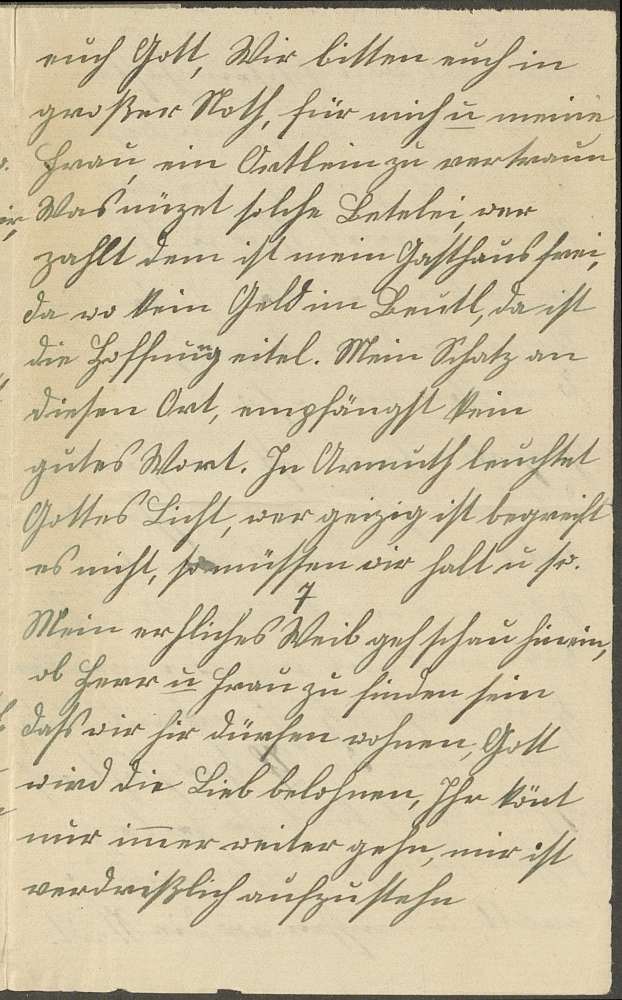 euch Gott, Wir bitten euch in
großer Noth, für mich u meine
Frau, ein Örtlein zu vertraun
Was nüzet solche Betelei, wer
zahlt dem ist mein Gasthaus frei,
da wo kein Geld im Beutl, da ist
die Hoffnung eitel. Mein Schatz an
diesen Ort, empfängst kein
gutes Wort. In Armuth leuchtet
Gottes Licht, wer geizig ist begreift
es nicht, so müssen wir halt u so.
7
Mein erhliches Weib geh schau hinein,
ob Herr u Frau zu finden sein
daß wir hir dürfen wohnen, Gott
wird die Lieb belohnen, Ihr könt
nur immer weiter gehn, mir ist
verdrißlich aufzustehn